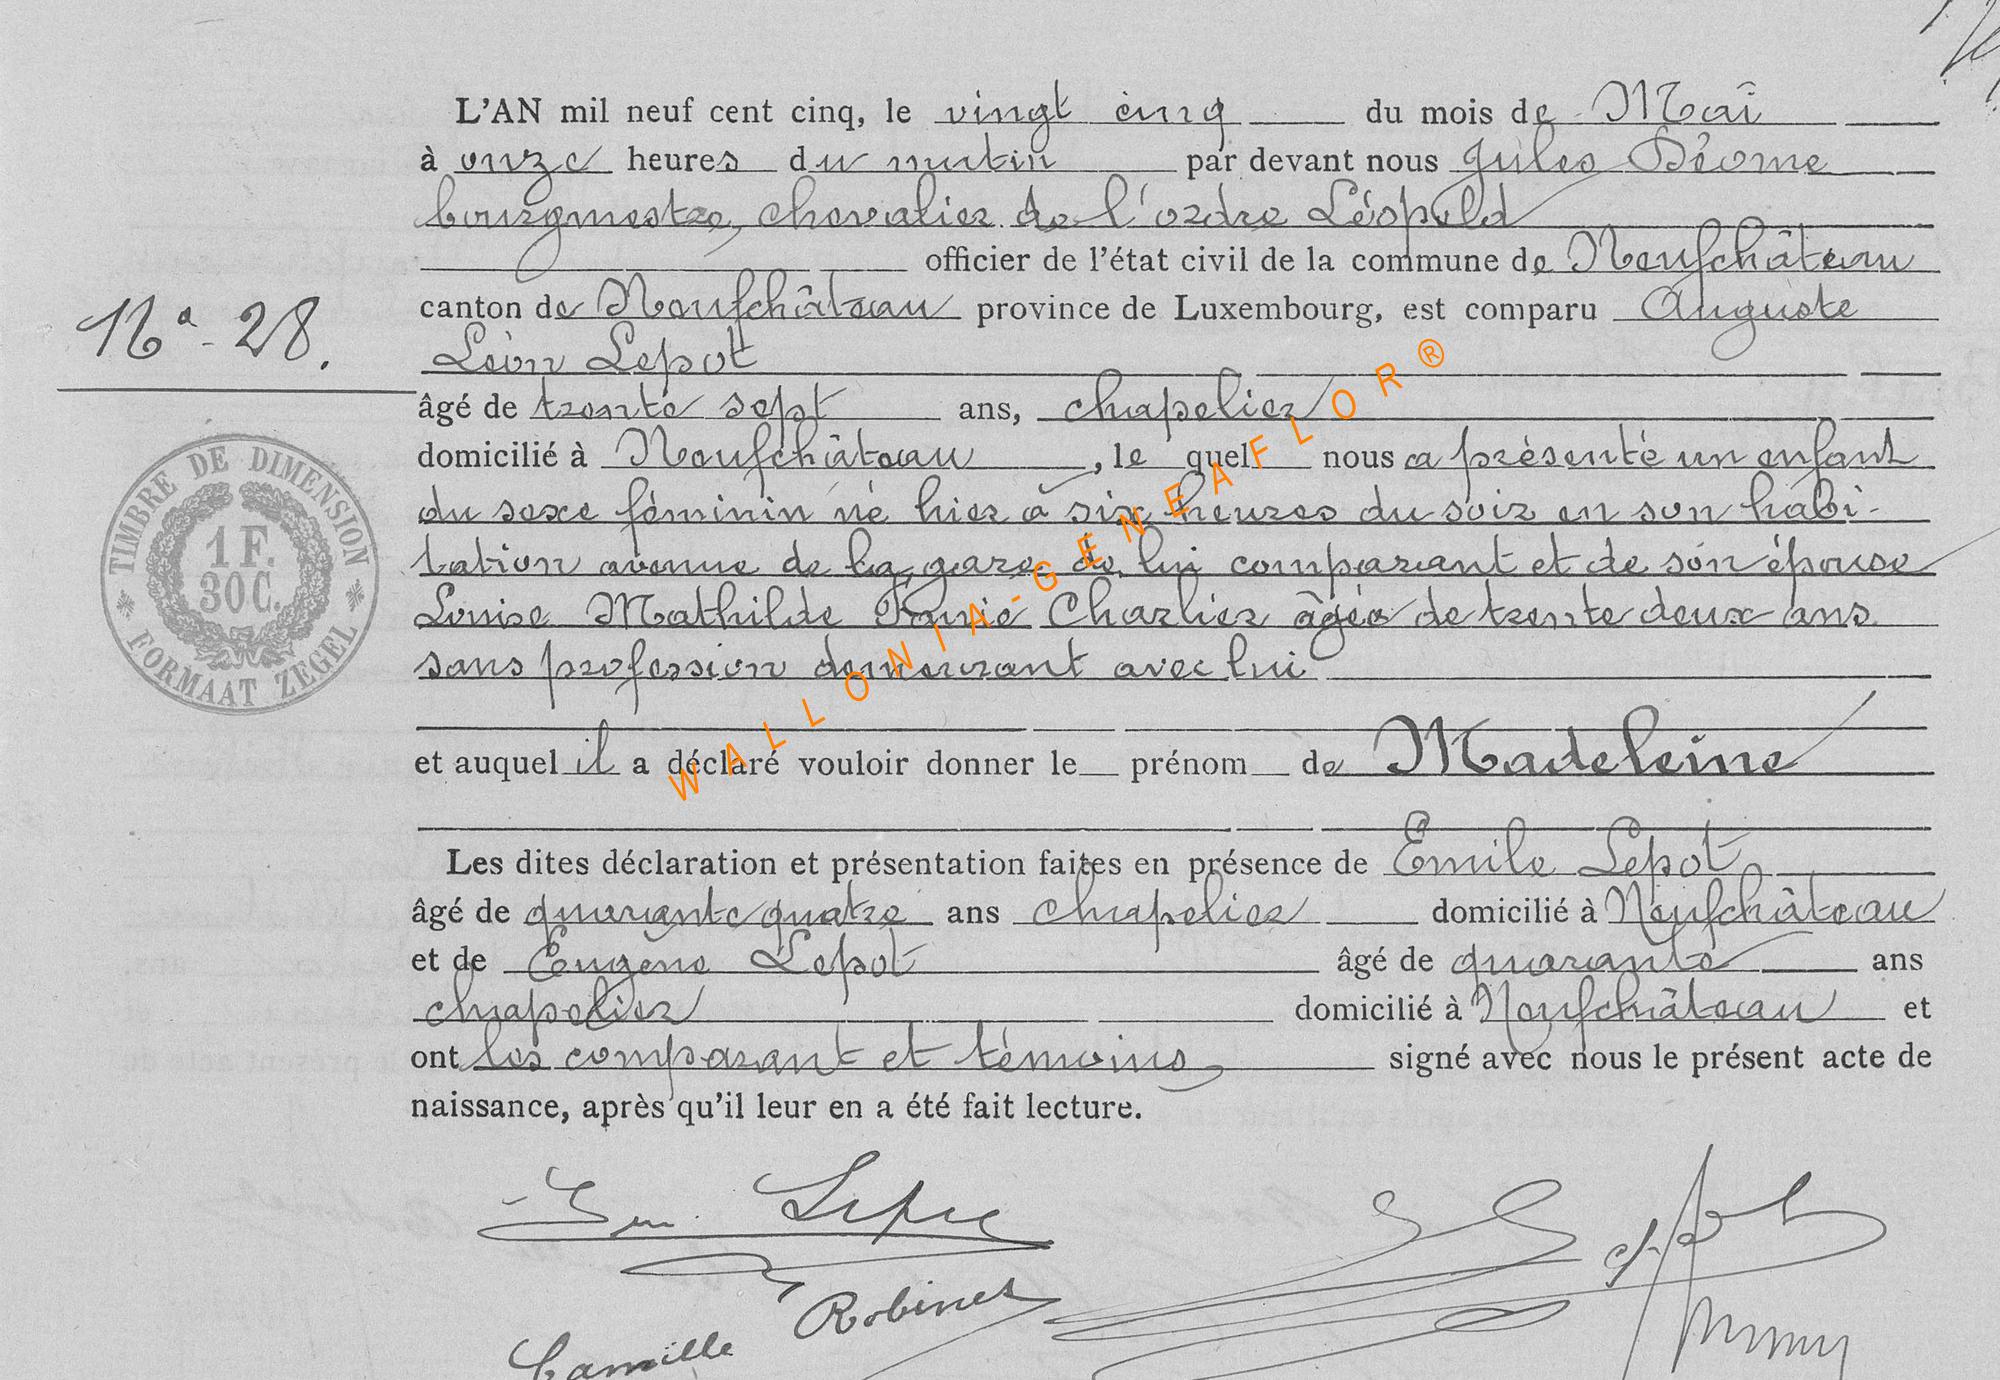 L'AN mil neuf cent cinq, le vingt cinq du mois de Mai
à onze heures du matin par devant nous Jules Déome
bourgmestre, chevalier de l'ordre Léopold
officier de l'état civil de la commune de Neufchâteau
canton de Neufchâteau province de Luxembourg, est comparu Auguste
Léon Lepot
âgé de trente sept ans, chapelier
domicilié à Neufchâteau, le quel nous a présenté un enfant
du sexe féminin né hier à six heures du soir en son habi-
tation avenue de la gare, de lui comparant et de son épouse
Louise Mathilde Charlier âgée de trente deux ans
sans profession demeurant avec lui
et auquel il a déclaré vouloir donner le prénom de Madeleine
Les dites déclaration et présentation faites en présence de Emile Lepot
âgé de quarante quatre ans chapelier domicilié à Neufchâteau
et de Eugène Lepot âgé de quarante ans
chapelier domicilié à Neufchâteau et
ont les comparant et témoins signé avec nous le présent acte de
naissance, après qu'il leur en a été fait lecture.
No. 28.
TIMBRE DE DIMENSION
1 F.
30 C.
FORMAAT ZEGEL
WALLONIA-GENEAFLOR®
Robinet
Camille